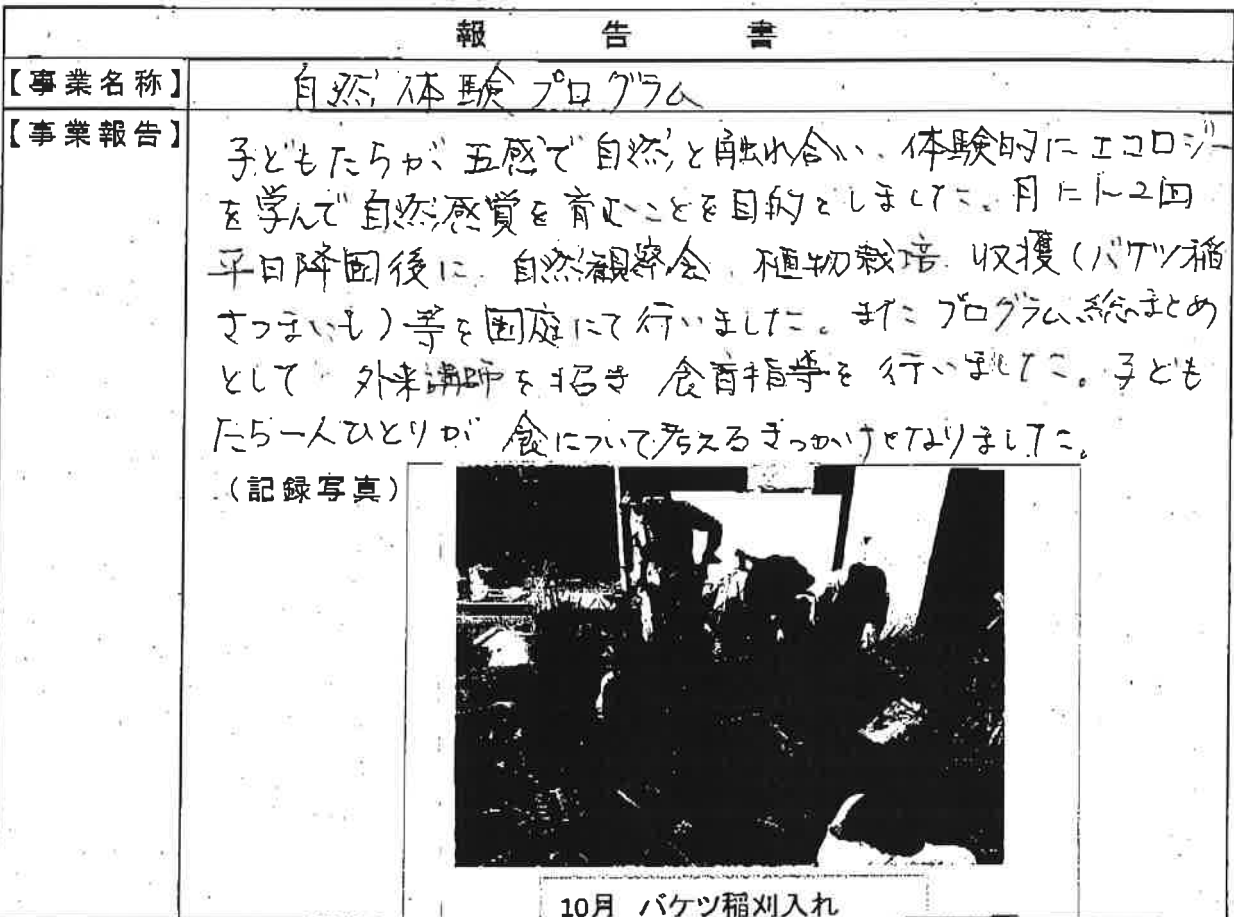 報告書
【事業名称】
自然体験プログラム
【事業報告】
子どもたちが五感で自然と触れ合い、体験的にエコロジー
を学んで自然感覚を育むことを目的としました。月に1~2回
平日降園後に、自然観察会、植物栽培、収獲(バケツ稲
さつまいも)等を園庭にて行いました。またプログラム総まとめ
として 外来講師を招き 食育指導を行いました。子ども
たち一人ひとりが 食について考えるきっかけとなりました。
(記録写真)
10月 バケツ稲刈入れ